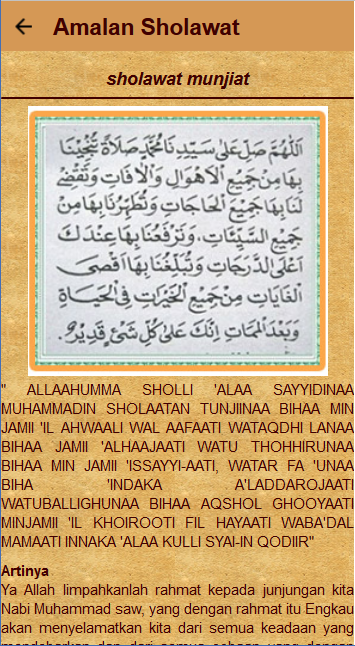 Amalan Sholawat
sholawat munjiat
اَللّٰهُمَّ صَلِّ عَلٰى سَيِّدِنَا مُحَمَّدٍ صَلَاةً تُنْجِيْنَا
بِهَا مِنْ جَمِيْعِ الْاَهْوَالِ وَالْاٰفَاتِ وَتَقْضِيْ
لَنَا بِهَا جَمِيْعَ الْحَاجَاتِ وَتُطَهِّرُنَا بِهَا مِنْ
جَمِيْعِ السَّيِّئَاتِ، وَتَرْفَعُنَا بِهَا عِنْدَكَ
اَعْلَى الدَّرَجَاتِ وَتُبَلِّغُنَا بِهَا اَقْصَى
الْغَايَاتِ مِنْ جَمِيْعِ الْخَيْرَاتِ فِى الْحَيَاةِ
وَبَعْدَ الْمَمَاتِ اِنَّكَ عَلٰى كُلِّ شَيْئٍ قَدِيْرٌ.
" ALLAAHUMMA SHOLLI 'ALAA SAYYIDINAA
MUHAMMADIN SHOLAATAN TUNJIINAA BIHAA MIN
JAMII 'IL AHWAALI WAL AAFAATI WATAQDHI LANAA
BIHAA JAMII 'ALHAAJAATI WATU THOHHIRUNAA
BIHAA MIN JAMII 'ISSAYYI-AATI, WATAR FA 'UNAA
BIHA 'INDAKA A'LADDAROJAATI
WATUBALLIGHUNAA BIHAA AQSHOL GHOOYAATI
MINJAMII 'IL KHOIROOTI FIL HAYAATI WABA'DAL
MAMAATI INNAKA 'ALAA KULLI SYAI-IN QODIIR"
Artinya
Ya Allah limpahkanlah rahmat kepada junjungan kita
Nabi Muhammad saw, yang dengan rahmat itu Engkau
akan menyelamatkan kita dari semua keadaan yang